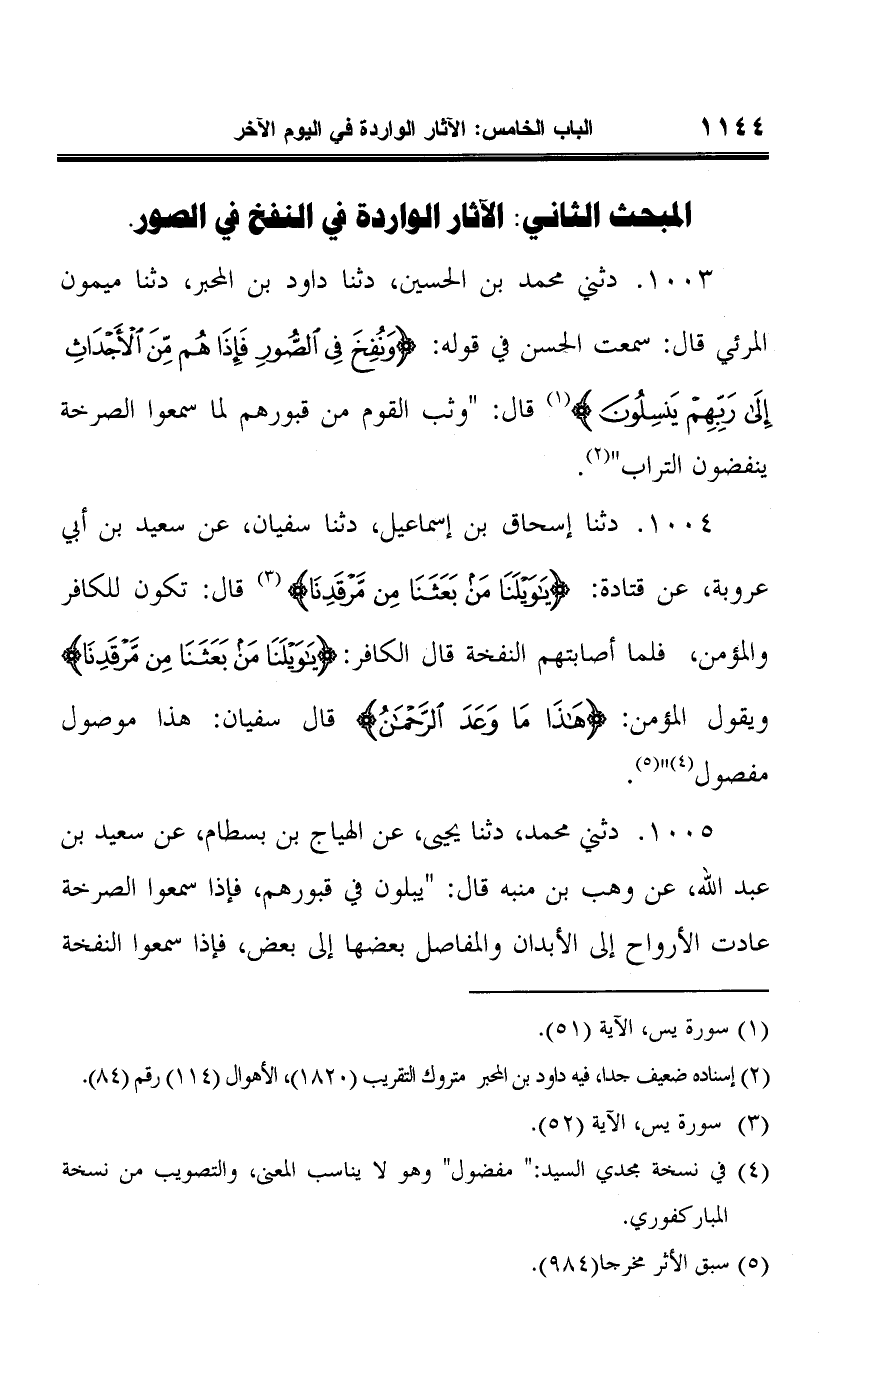 ١١٤٤ الباب الخامس: الآثار الواردة في اليوم الآخر
المبحث الثاني: الآثار الواردة في النفخ في الصور.
١٠٠٣. دثني محمد بن الحسين، دثنا داود بن المحبر، دثنا ميمون
المرئي قال: سمعت الحسن في قوله: ﴿وَنُفِخَ فِي ٱلصُّورِ فَإِذَا هُم مِّنَ ٱلْأَجْدَاثِ
إِلَىٰ رَبِّهِمْ يَنسِلُونَ﴾(١) قال: "وثب القوم من قبورهم لما سمعوا الصرخة
ينفضون التراب"(٢).
١٠٠٤. دثنا إسحاق بن إسماعيل، دثنا سفيان، عن سعيد بن أبي
عروبة، عن قتادة: ﴿يَٰوَيْلَنَا مَنۢ بَعَثَنَا مِن مَّرْقَدِنَا﴾(٣) قال: تكون للكافر
والمؤمن، فلما أصابتهم النفخة قال الكافر: ﴿يَٰوَيْلَنَا مَنۢ بَعَثَنَا مِن مَّرْقَدِنَا﴾
ويقول المؤمن: ﴿هَٰذَا مَا وَعَدَ ٱلرَّحْمَٰنُ﴾ قال سفيان: هذا موصول
مفصول(٤)"(٥).
١٠٠٥. دثني محمد، دثنا يحيى، عن الهياج بن بسطام، عن سعيد بن
عبد الله، عن وهب بن منبه قال: "يبلون في قبورهم، فإذا سمعوا الصرخة
عادت الأرواح إلى الأبدان والمفاصل بعضها إلى بعض، فإذا سمعوا النفخة
(١) سورة يس، الآية (٥١).
(٢) إسناده ضعيف جدا، فيه داود بن المحبر متروك التقريب (١٨٢٠)، الأهوال (١١٤) رقم (٨٤).
(٣) سورة يس، الآية (٥٢).
(٤) في نسخة مجدي السيد:" مفضول" وهو لا يناسب المعنى، والتصويب من نسخة
المباركفوري.
(٥) سبق الأثر مخرجا(٩٨٤).